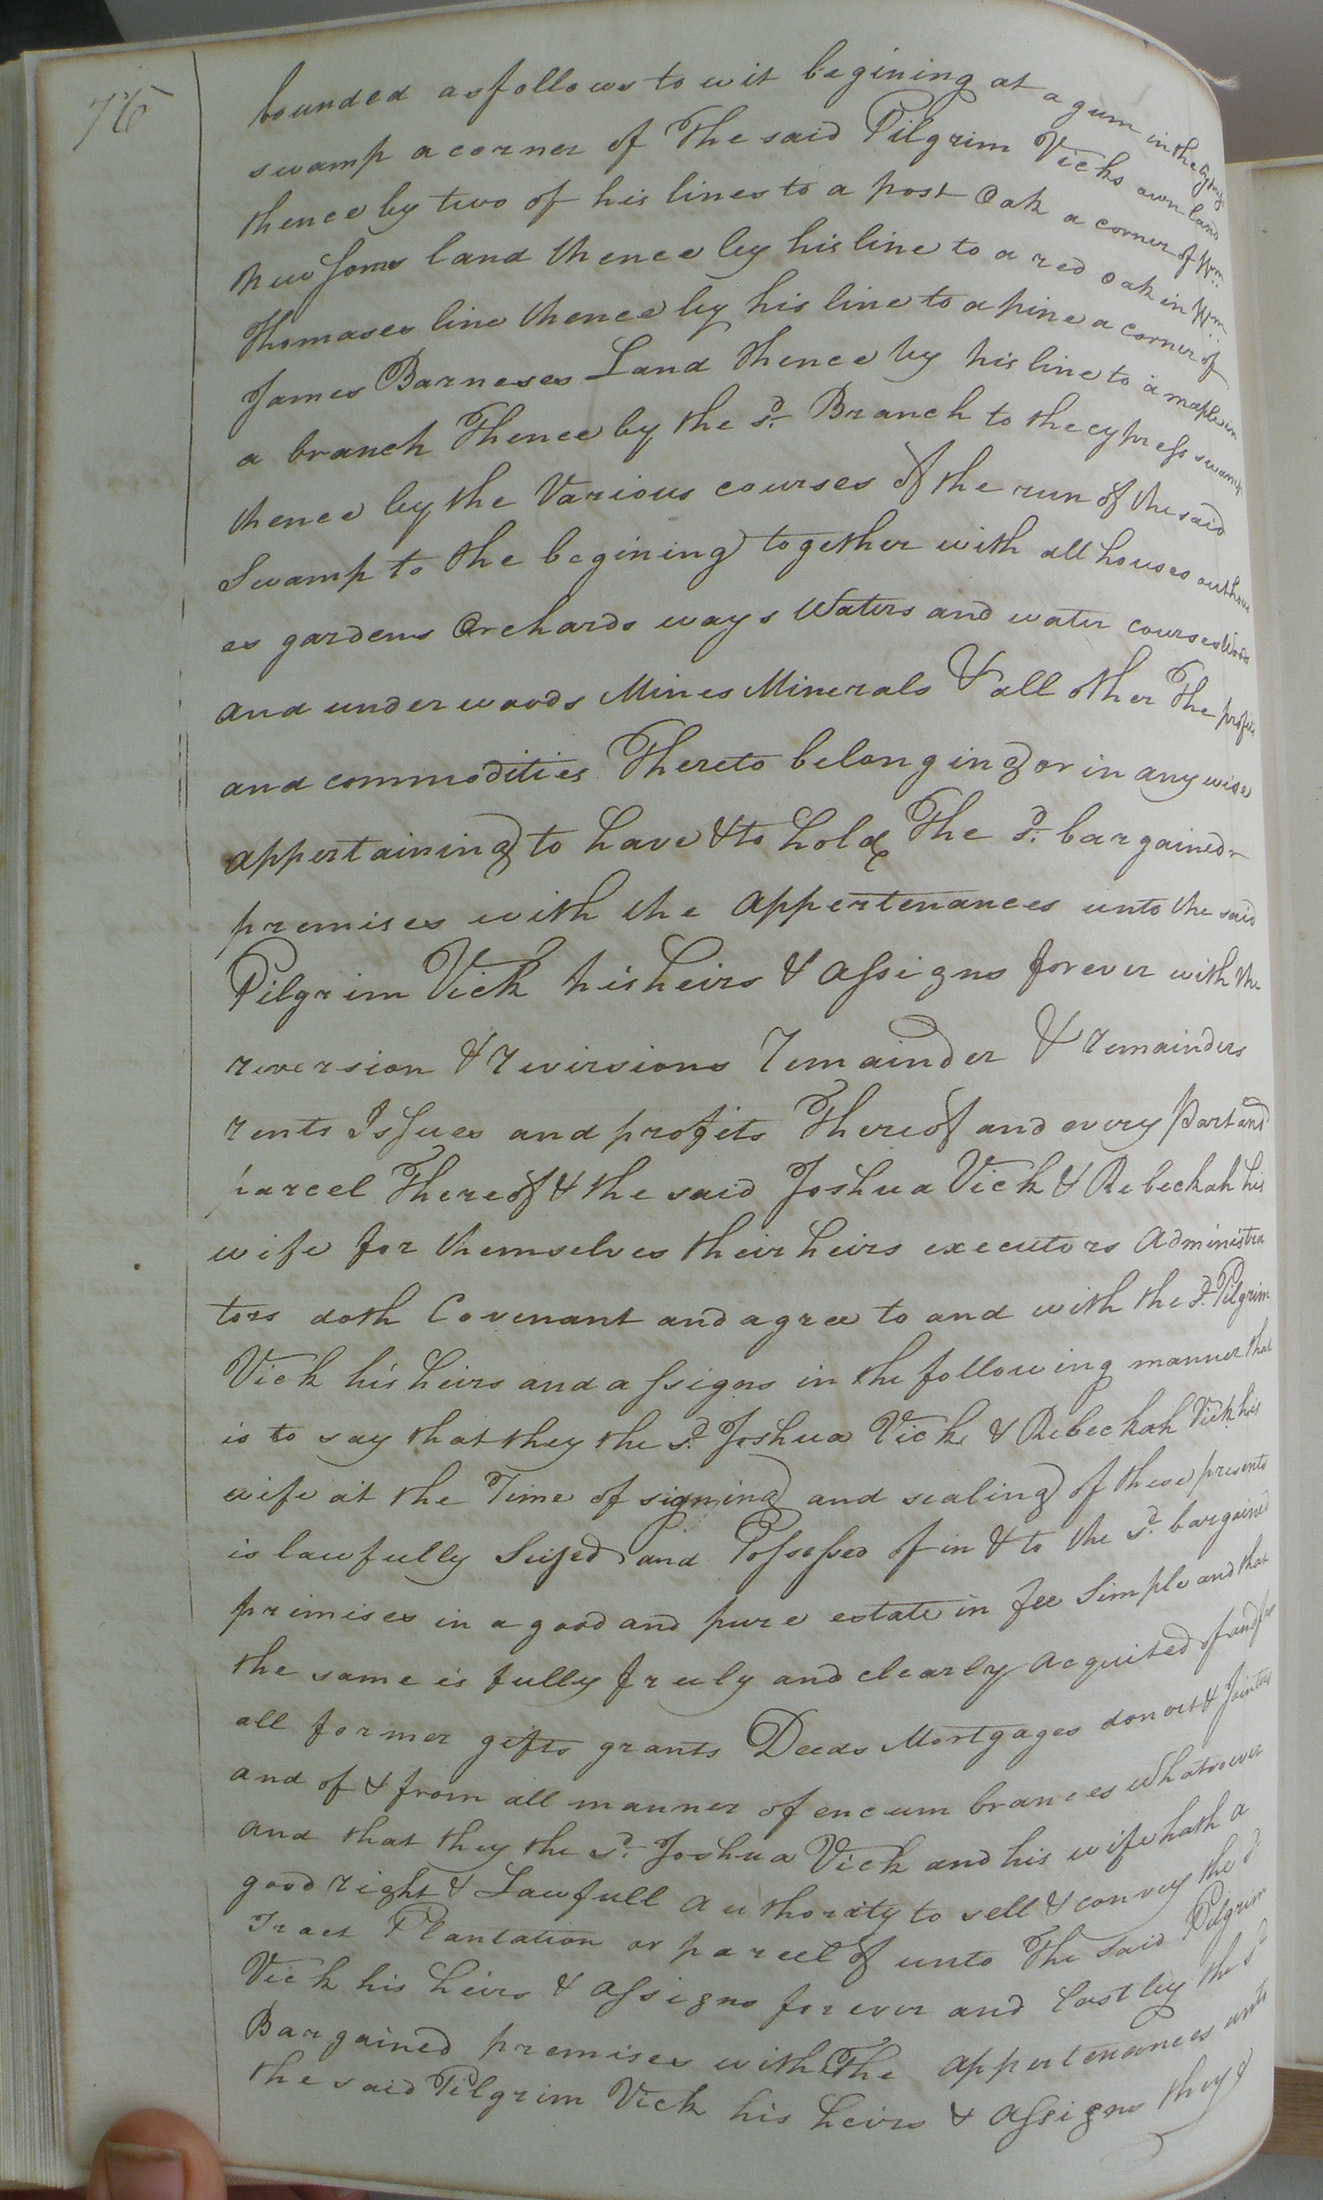 76
bounded as follows to wit begining at a gum in the Cypress
swamp a corner of The said Pilgrim Vicks own land
thence by two of his lines to a post Oak a corner of Wm.
newsoms land thence by his line to a red oak in Wm.
Thomases line thence by his line to a pine a corner of
James Barneses Land thence by his line to a maple in
a branch Thence by the sd. Branch to the cypress swamp
thence by the Various courses of the run of the said
Swamp to the begining together with all houses outhous
es gardens Orchards ways Waters and water courses Woods
and under woods Mines Minerals & all other The profits
and commodities Thereto belonging or in any wise
appertaining to have & to hold The sd. bargained
premises with the appertenances unto the said
Pilgrim Vick his heirs & assigns forever with the
reversion & revirsions remainder & remainders
rents Issues and profits Thereof and every part and
parcel Thereof & the said Joshua Vick & Rebeckah his
wife for themselves their heirs executors Administra
tors doth Covenant and agree to and with the sd. Pilgrim
Vick his heirs and assigns in the following manner that
is to say that they the sd. Joshua Vick & Rebeckah Vick his
wife at the Time of signing and sealing of these presents
is lawfully Seised and Possessed of in & to the sd. bargained
primises in a good and pure estate in fee Simple and that
the same is fully freely and clearly acquited of and from
all former gifts grants Deeds Mortgages & Jointers
and of & from all manner of encumbrances whatsoever
and that they the sd. Joshua Vick and his wife hath a
good right & Lawfull authority to sell & convey the sd
Tract Plantation or parcel of unto The said Pilgrim
Vick his heirs & assigns forever and lastley the sd
Bargained premises with The appertenances unto
the said Pilgrim Vick his heirs & assigns they